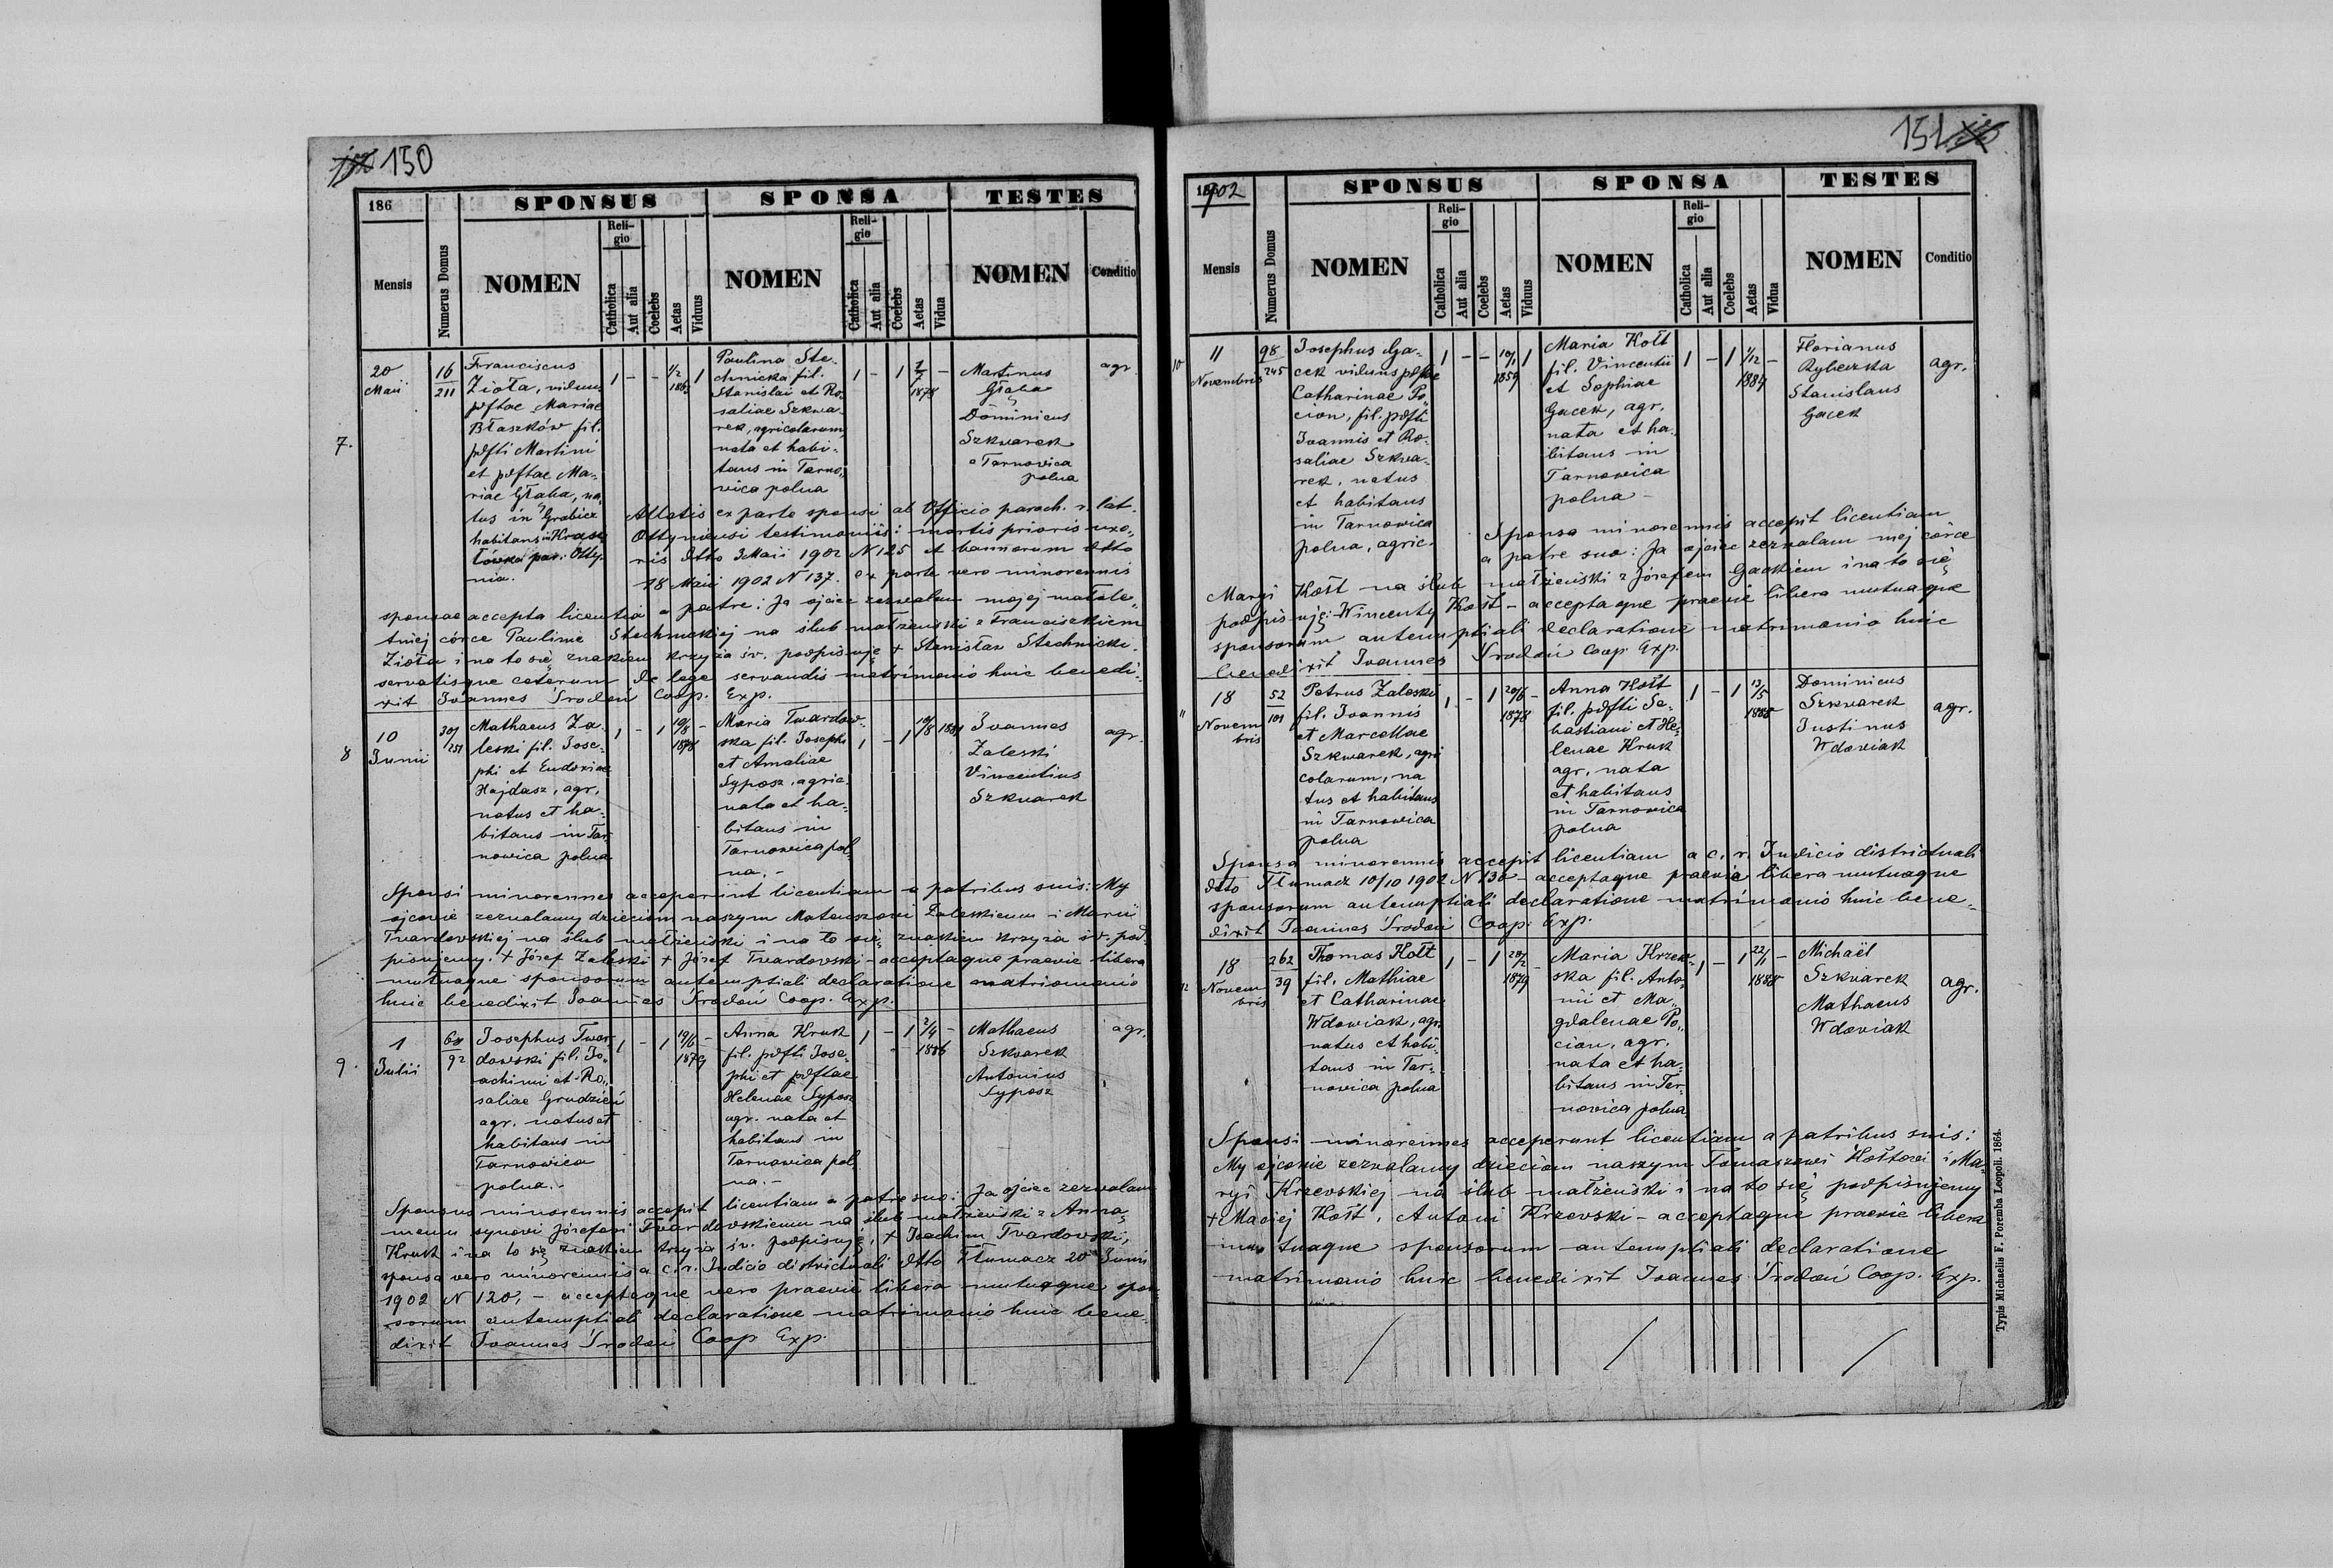 150
186
SPONSUS
SPONSA
TESTES
Mensis
Numerus Domus
NOMEN
Religio
Catholica
Aut alia
Coelebs
Aetas
Viduus
NOMEN
Religio
Catholica
Aut alia
Coelebs
Aetas
Vidua
NOMEN
Conditio
7.
20
Maii
16
211
Franciscus
Zioła, viduus
pdftae Mariae
Błaszków fil.
pdfti Martini
et pdftae Ma-
riae Głąba, na
tus in Grabicz
habitans in Kras
łówka par. Otty
nia.
1 - - 1/2 1
186
Paulina Ste-
chnicka fil.
Stanislai et Ro-
saliae Szkwa-
rek, agricolarum,
nata et habi-
tans in Tarno-
wica polna
1 - 1
1878
-
Martinus
Głąba
Dominicus
Szkwarek
a Tarnowica
polna
agr.
Allatis ex parte sponsi ab Officio paroch. r. lat.
Ottyniensi testimoniis: mortis prioris uxo-
ris ddto 3 Maii 1902 N 125 et bannorum ddto
18 Maii 1902 N 137. ex parte vero minorennis
sponsae accepta licentia a patre: Ja ojciec zezwalam mojej małole-
tniej córce Paulinie Stechnickiej na ślub małżeński z Franciszkiem
Zioła i na to się znakiem krzyża św. podpisuję + Stanisław Stechnicki.
servatisque ceterum de lege servandis matrimonio huic benedi-
xit Joannes Środoń Coop. Exp.
8
10
Junii
301
251
Mathaeus Za-
leski fil. Jose-
phi et Eudoxiae
Hajdasz, agr.
natus et ha-
bitans in Tar-
nowica polna
1 - 1 19/8 -
1878
Maria Twardow-
ska fil. Josephi
et Amaliae
Syposz, agric.
nata et ha-
bitans in
Tarnowica pol-
na. -
1 - 1 19/8 1881
Joannes
Zaleski
Vincentius
Szkwarek
agr.
Sponsi minorennes acceperunt licentiam a patribus suis: My
ojcowie zezwalamy dzieciom naszym Mateuszowi Zaleskiemu i Maryi
Twardowskiej na ślub małżeński i na to się znakiem krzyża św. pod-
pisujemy. + Józef Zaleski + Józef Twardowski - acceptaque praevie libera
mutuaque sponsorum antenuptiali declaratione matrimonio
huic benedixit Joannes Środoń Coop. Exp.
9.
1
Julii
68
92
Josephus Twar-
dowski fil. Jo-
achimi et Ro-
saliae Grudzień
agr. natus et
habitans in
Tarnowica
polna. -
1 - 1 19/6 -
1879
Anna Hruk
fil. pdfti Jose-
phi et pdftae
Helenae Syposz
agr. nata et
habitans in
Tarnowica pol
na. -
1 - 1 2/4 -
1886
Mathaeus
Szkwarek
Antonius
Syposz
agr.
Sponsus minorennis accepit licentiam a patre suo: Ja ojciec zezwalam
memu synowi Józefowi Twardowskiemu na ślub małżeński z Anną
Hruk i na to się znakiem krzyża św. podpisuję, + Joachim Twardowski,
sponsa vero minorennis a c. r. Judicio districtuali ddto Tłumacz 20 Junii
1902 N 120, - acceptaque vero praevie libera mutuaque spon-
sorum antenuptiali declaratione matrimonio huic bene-
dixit Joannes Środoń Coop Exp.
151
1902
SPONSUS
SPONSA
TESTES
Mensis
Numerus Domus
NOMEN
Religio
Catholica
Aut alia
Coelebs
Aetas
Viduus
NOMEN
Religio
Catholica
Aut alia
Coelebs
Aetas
Vidua
NOMEN
Conditio
10
11
Novembris
98
245
Josephus Ga-
cek viduus pdftae
Catharinae Po-
cion, fil. pdfti
Joannis et Ro-
saliae Szkwa-
rek, natus
et habitans
in Tarnowica
polna, agric.
1 - - 10/1 1
1859
Maria Kołt
fil. Vincentii
et Sophiae
Gacek, agr.
nata et ha-
bitans in
Tarnowica
polna -
1 - 1 1/12 -
1884
Florianus
Ryberzka
Stanislaus
Gacek
agr.
Sponsa minorennis accepit licentiam
a patre suo: Ja ojciec zezwalam mej córce
Maryi Kołt na ślub małżeński z Józefem Gackiem i na to się
podpisuję: Wincenty Kołt - acceptaque praevie libera mutuaque
sponsorum antenuptiali declaratione matrimonio huic
benedixit Joannes Środoń Coop. Exp.
11
18
Novem
bris
52
101
Petrus Zaleski
fil. Joannis
et Marcellae
Szkwarek, agri
colarum, na
tus et habitans
in Tarnowica
polna
1 - 1 29/6 -
1878
Anna Kołt
fil. pdfti Se-
bastiani et He-
lenae Hruk
agr. nata
et habitans
in Tarnowica
polna
1 - 1 13/5
1885
Dominicus
Szkwarek
Justinus
Wdowiak
agr.
Sponsa minorennis accepit licentiam a c. r. Judicio districtuali
ddto Tłumacz 10/10 1902 N 130 - acceptaque praevie libera mutuaque
sponsorum antenuptiali declaratione matrimonio huic bene-
dixit Joannes Środoń Coop. Exp.
12
18
Novem
bris
262
39
Thomas Kołt
fil. Mathiae
et Catharinae
Wdowiak, agr.
natus et habi-
tans in Tar-
nowica polna
1 - 1 -
1879
Maria Krzew-
ska fil. Anto-
nii et Ma-
gdalenae Po-
cion, agr.
nata et ha-
bitans in Tar-
nowica polna
1 - 1 22/11 -
1885
Michaël
Szkwarek
Mathaeus
Wdowiak
agr.
Sponsi minorennes acceperunt licentiam a patribus suis:
My ojcowie zezwalamy dzieciom naszym Tomaszowi Kołtowi i Ma-
ryi Krzewskiej na ślub małżeński i na to się podpisujemy
+ Maciej Kołt, Antoni Krzewski - acceptaque praevie libera
mutuaque sponsorum antenuptiali declaratione
matrimonio huic benedixit Joannes Środoń Coop. Exp.
Typis Michaelis F. Poremba Leopoli. 1864.